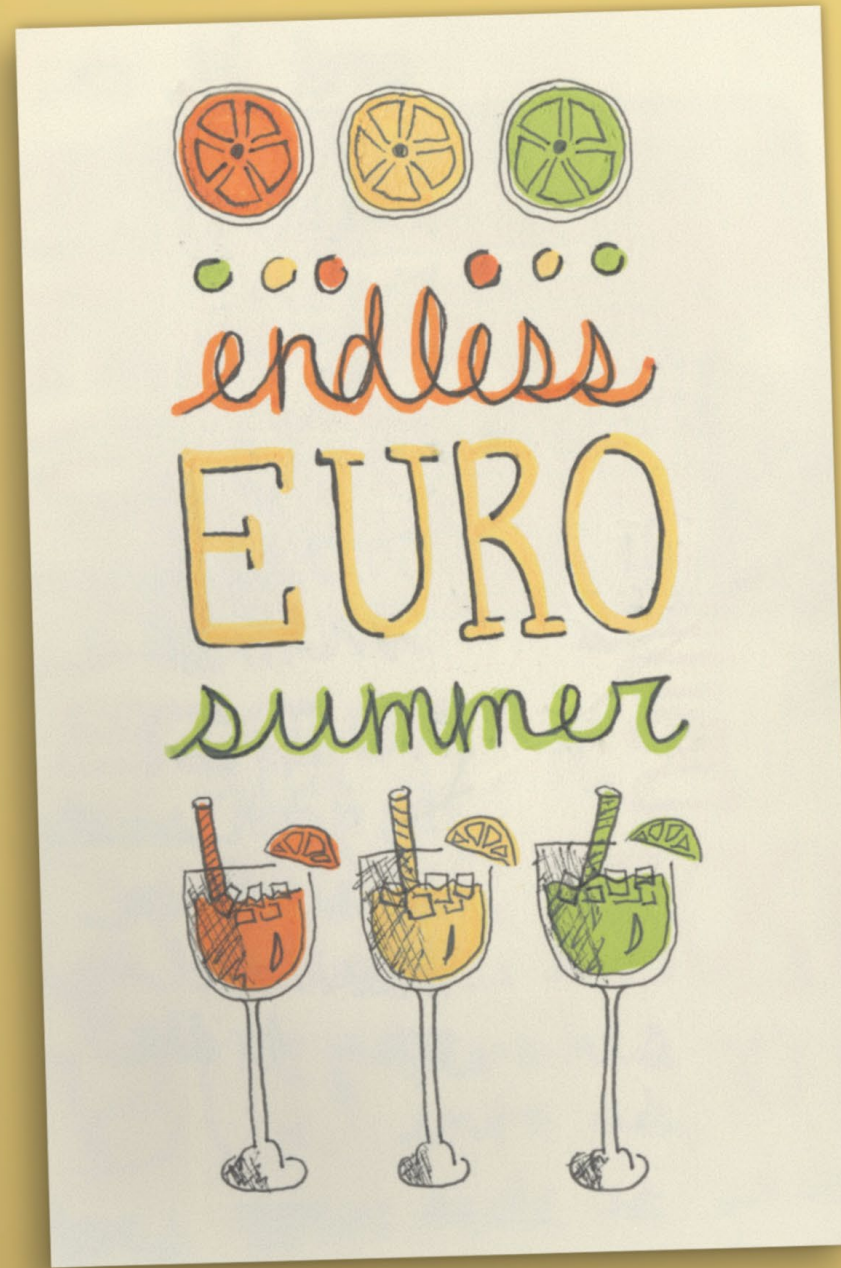 endless
EURO
summer